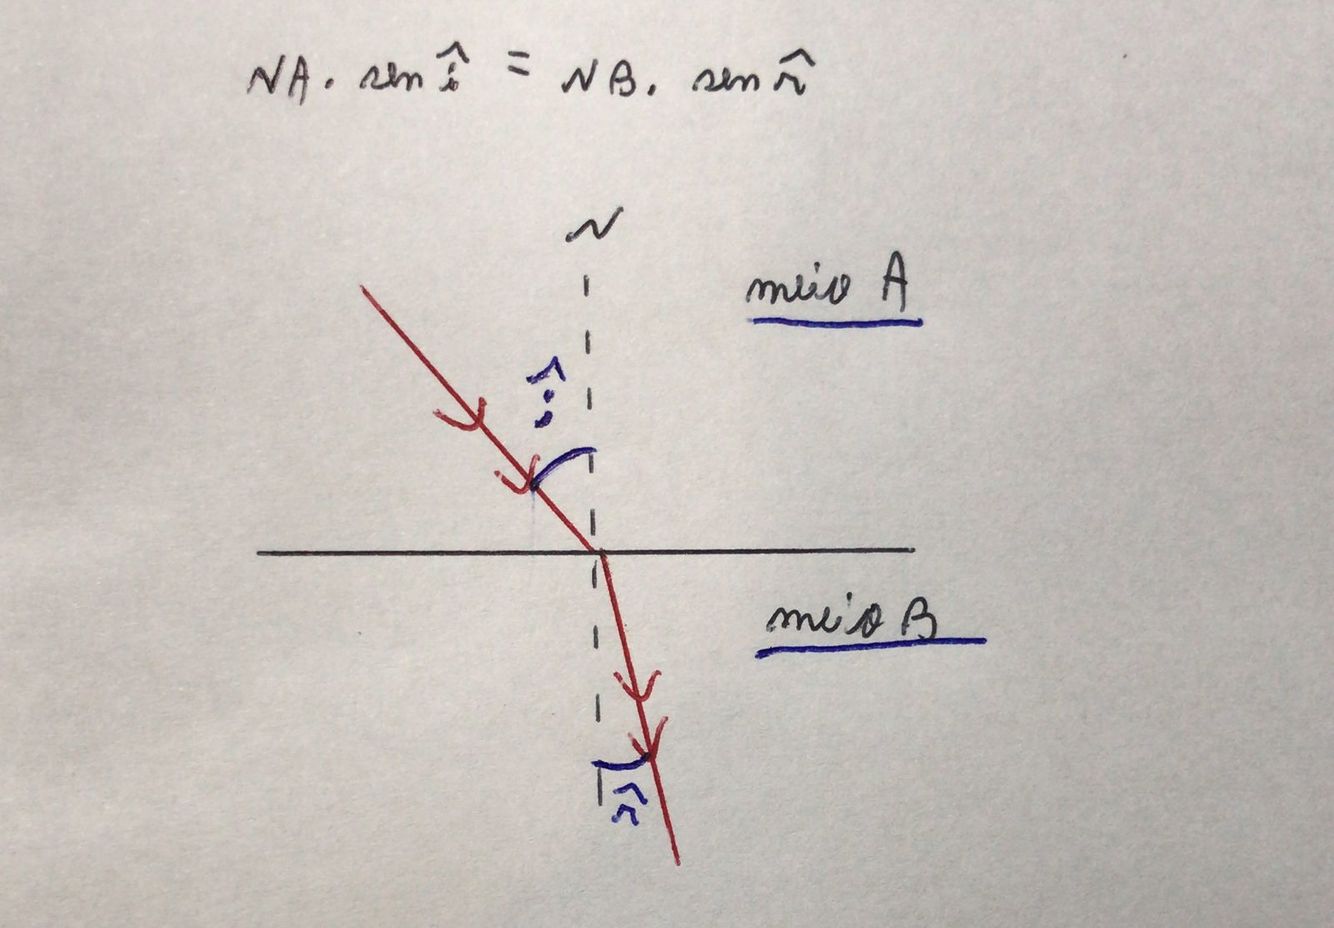 NA. sen î = NB. sen r̂
N
meio A
î
meio B
r̂